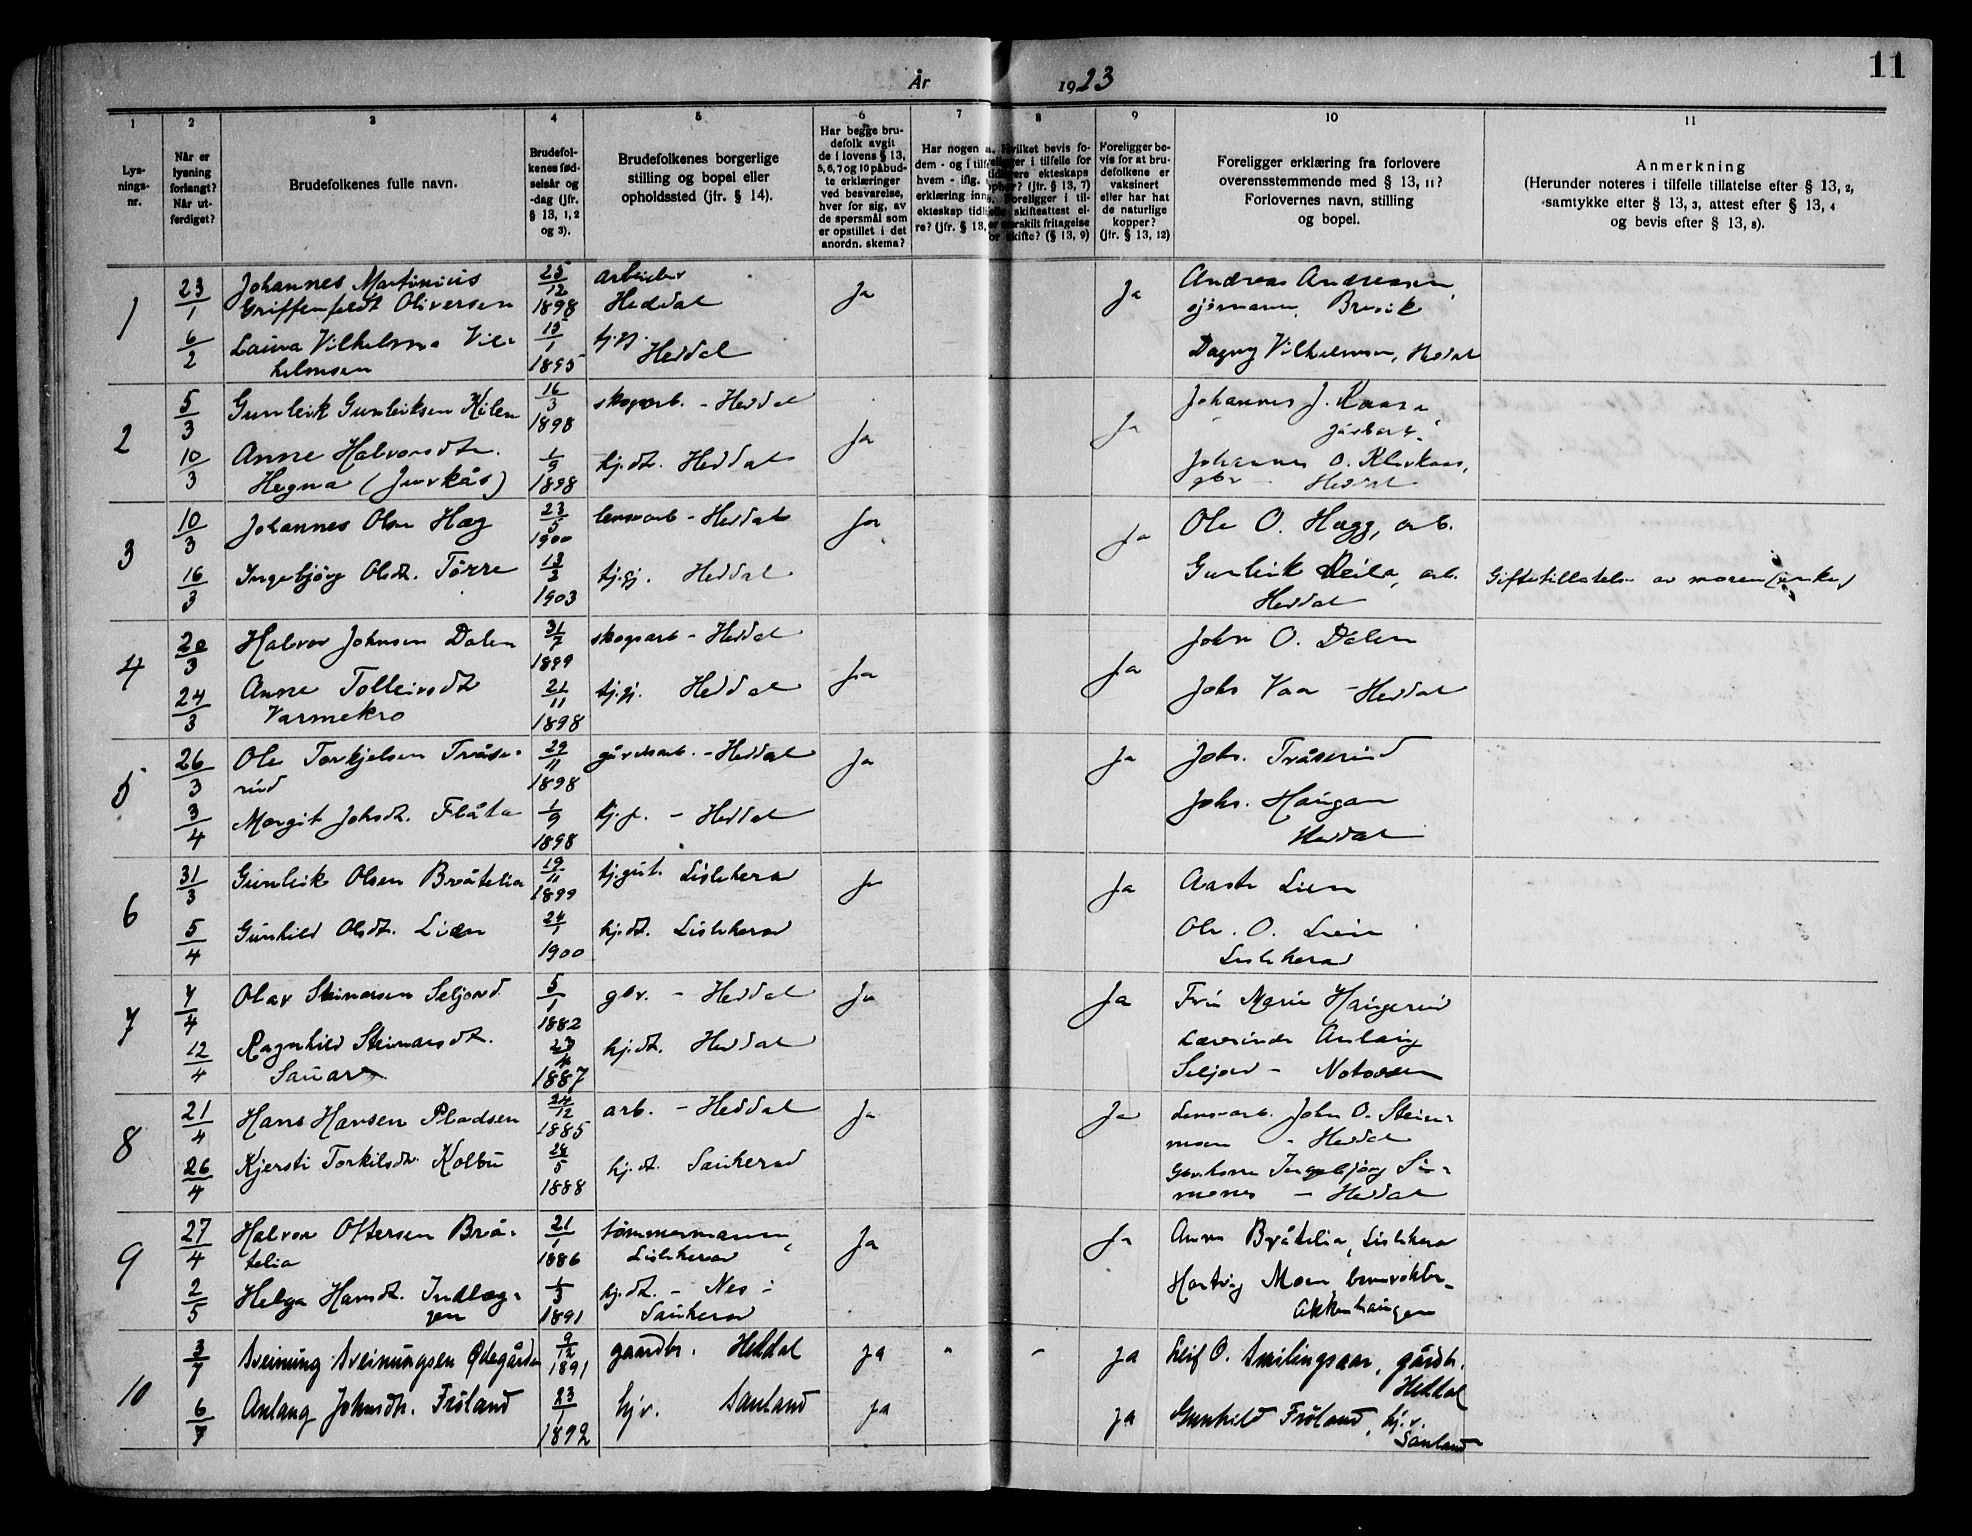 11
År 1923
1 2 3 4 5 6 7 8 9 10 11
Lys-
nings-
nr.
Når er
lysning
forlangt?
Når ut-
ferdiget?
Brudefolkenes fulle navn.
Brudefol-
kenes fød-
selsår og
-dag (jfr.
§ 13, 1, 2
og 3).
Brudefolkenes borgerlige
stilling og bopel eller
opholdssted (jfr. § 14).
Har begge bru-
defolk avgit
de i lovens § 13,
5, 6, 7 og 10 påbud-
te erklæringer
ved besvarelse,
hver for sig, av
de spørsmål som
er opstillet i det
anordn. skema?
Har nogen a
dem - og i tilf
hvem - iflg.
erklæring inn
ekteskap tidli
re? (jfr. § 13,
Hvilket bevis fo-
religger i tilfelle for
tidligere ekteskaps
ophør? (jfr. § 13, 7)
Foreligger i til-
felle skifteattest el-
er særskilt fritagelse
for skifte? (§ 13, 9)
Foreligger be-
vis for at bru-
defolkene er
vaksinert
eller har hat
de naturlige
kopper?
(jfr. § 13, 12)
Foreligger erklæring fra forlovere
overensstemmende med § 13, 11?
Forlovernes navn, stilling
og bopel.
Anmerkning
(Herunder noteres i tilfelle tillatelse efter § 13, 2,
samtykke efter § 13, 3, attest efter § 13, 4
og bevis efter § 13, 8).
1 23/1 Johannes Martinius 25/12 arbeider Ja Ja Andreas Andreasen,
Griffenfeldt Oliversen 1898 Heddal sjömann, Brevik
6/2 Laura Vilhelmine Vil- 15/1 tj.pj. Dagny Vilhelmsen, Heddal
helmsen 1895 Heddal
2 5/3 Gunleik Gunleiksen Kilen 16/3 1898 skogsarb. - Heddal Ja Ja Johannes J. Kaasa
10/3 Anne Halvorsdtr. 1/9 hj.dt. Heddal Johannes O. Klevkaas,
Hegna (Jurkås) 1898 gbr - Heddal
3 10/3 Johannes Olsen Hæg 23/5 1900 lensearb - Heddal Ja Ja Ole O. Hægg, arb.
16/3 Ingebjörg Olsdt. Törre 13/2 1903 tj.gj. Heddal Gunleik Deila, arb. Giftetillatelse av moren (enke)
Heddal
4 20/3 Halvor Johnsen Dalen 31/7 1899 skogsarb - Heddal Ja Ja John O. Dalen
24/3 Anne Tolleivsdtr 21/11 tj.gj. Heddal Johs Vaa - Heddal
Varmekro 1898
5 26/3 Ole Torkjelsen Tråse- 29/11 gårdsarb. - Heddal Ja Ja Johs. Tråserud
rud 1898
3/4 Margit Johsdt. Flåta 1/9 1898 tj.p. - Heddal Johs. Haugan
Heddal
6 31/3 Gunleik Olsen Bråtelia 19/11 1899 tj.gut. Lisleherad Ja Ja Aaste Lien
5/4 Gunhild Olsdt. Lien 24/1 1900 hj.dt. Lisleherad Ole. O. Lien
Lisleherad
7 7/4 Olav Steinarsen Seljord 5/1 1882 gbr. - Heddal Ja Ja Fru Marie Haugerud
12/4 Ragnhild Steinarsdt. 23/4 hj.dt. Heddal Lærerinde Anlaug
Sauar 1887 Seljord - Notodden
8 21/4 Hans Hansen Pladsen 24/12 1885 arb. - Heddal Ja Ja Lensearb. John O. Stein-
moen - Heddal
26/4 Kjersti Torkilsdtr. Kolbu 28/5 1888 hj.dt. Sauherad Gbr.kone Ingebjörg Si-
mones - Heddal
9 27/4 Halvor Ottersen Brå- 21/1 tömmermann, Ja Ja Anne Bråtelia, Lisleherad
telia 1886 Lisleherad
2/5 Helga Hansdt. Indlæg- 1/3 hj.dt. - Nes i Hartvig Moen,
gen 1891 Sauherad Akkerhaugen
10 3/7 Sveinung Sveinungsen Ödegården 9/12 1891 gaardbr. Heddal Ja " " Ja Leif O. Smilingsaar, gårdbr.
Heddal
6/7 Anlaug Johnsdtr. Fröland 23/1 1892 hjv. Sauland Ja Ja Gunhild Fröland, hj.v.
Sauland